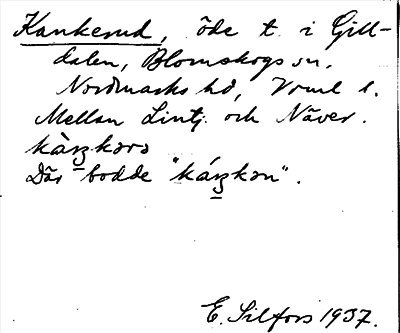 Kankerud, öde t. i Gill-
dalen, Blomskogs sn.
Nordmarks hd, Vrml l.
Mellan Lintj. och Näver.
Där bodde "káŋkən".
E. Silfors 1937.